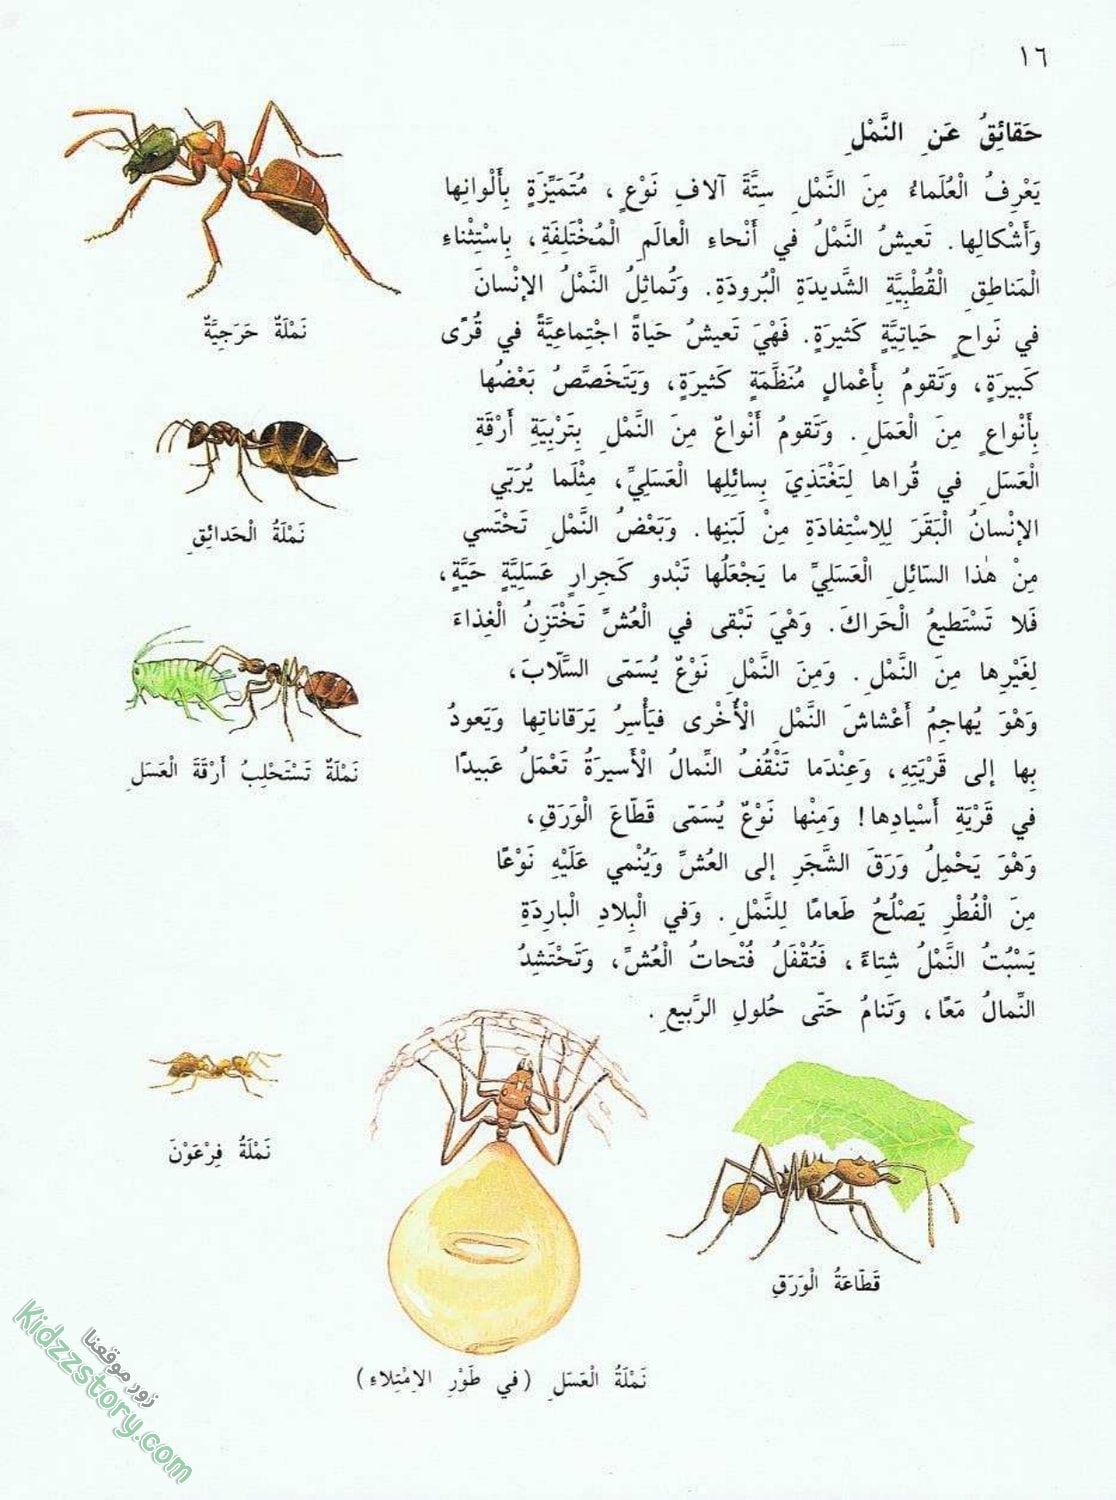 ١٦
حَقائِقُ عَنِ النَّمْلِ
يَعْرِفُ الْعُلَماءُ مِنَ النَّمْلِ سِتَّةَ آلافِ نَوْعٍ، مُتَمَيِّزَةٍ بِأَلْوانِها
وَأَشْكالِها. تَعيشُ النَّمْلُ في أَنْحاءِ الْعالَمِ الْمُخْتَلِفَةِ، بِاسْتِثْناءِ
الْمَناطِقِ الْقُطْبِيَّةِ الشَّديدَةِ الْبُرودَةِ. وَتُماثِلُ النَّمْلُ الإنْسانَ
في نَواحٍ حَياتِيَّةٍ كَثيرَةٍ. فَهْيَ تَعيشُ حَياةً اجْتِماعِيَّةً في قُرًى
كَبيرَةٍ، وَتَقومُ بِأَعْمالٍ مُنَظَّمَةٍ كَثيرَةٍ، وَيَتَخَصَّصُ بَعْضُها
بِأَنْواعٍ مِنَ الْعَمَلِ. وَتَقومُ أَنْواعٌ مِنَ النَّمْلِ بِتَرْبِيَةِ أَرْقَةِ
الْعَسَلِ في قُراها لِتَغْتَذِيَ بِسائِلِها الْعَسَلِيِّ، مِثْلَما يُرَبّي
الإنْسانُ الْبَقَرَ لِلِاسْتِفادَةِ مِنْ لَبَنِها. وَبَعْضُ النَّمْلِ تَحْتَسي
مِنْ هٰذا السّائِلِ الْعَسَلِيِّ ما يَجْعَلُها تَبْدو كَجِرارٍ عَسَلِيَّةٍ حَيَّةٍ،
فَلا تَسْتَطيعُ الْحَراكَ. وَهْيَ تَبْقى في الْعُشِّ تَخْتَزِنُ الْغِذاءَ
لِغَيْرِها مِنَ النَّمْلِ. وَمِنَ النَّمْلِ نَوْعٌ يُسَمّى السَّلّابَ،
وَهْوَ يُهاجِمُ أَعْشاشَ النَّمْلِ الْأُخْرى فَيَأْسِرُ يَرَقاناتِها وَيَعودُ
بِها إلى قَرْيَتِهِ، وَعِنْدَما تَنْقُفُ النِّمالُ الْأَسيرَةُ تَعْمَلُ عَبيدًا
في قَرْيَةِ أَسْيادِها! وَمِنْها نَوْعٌ يُسَمّى قَطّاعَ الْوَرَقِ،
وَهْوَ يَحْمِلُ وَرَقَ الشَّجَرِ إلى العُشِّ وَيُنْمي عَلَيْهِ نَوْعًا
مِنَ الْفُطْرِ يَصْلُحُ طَعامًا لِلنَّمْلِ. وَفي الْبِلادِ الْبارِدَةِ
يَسْبُتُ النَّمْلُ شِتاءً، فَتُقْفَلُ فُتْحاتُ الْعُشِّ، وَتَحْتَشِدُ
النِّمالُ مَعًا، وَتَنامُ حَتّى حُلولِ الرَّبيعِ.
نَمْلَةٌ حَرَجِيَّةٌ
نَمْلَةُ الْحَدائِقِ
نَمْلَةٌ تَسْتَحْلِبُ أَرْقَةَ الْعَسَلِ
نَمْلَةُ فِرْعَوْنَ
نَمْلَةُ الْعَسَلِ (في طَوْرِ الِامْتِلاءِ)
قَطّاعَةُ الْوَرَقِ
زور موقعنا
Kidzzstory.com